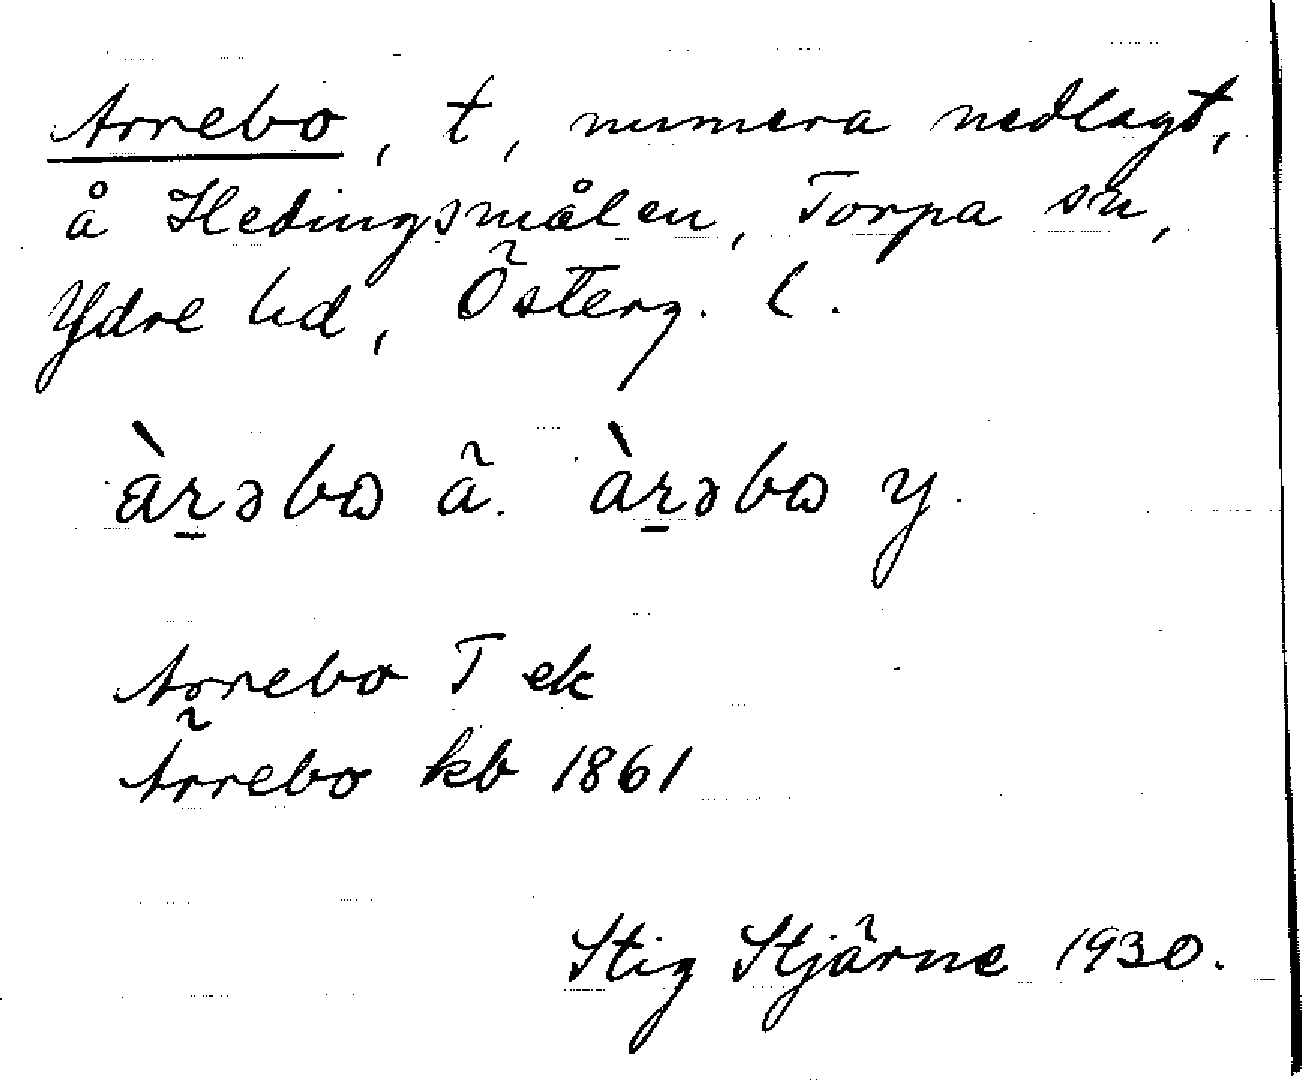 Arrebo, t, numera nedlagt,
å Hedingsmålen, Torpa sn,
Ydre hd, Österg. l.
àr̲əbɷ ä. àr̲əbɷ y.
Arrebo T ek
Ärrebo kb 1861
Stig Stjärne 1930.